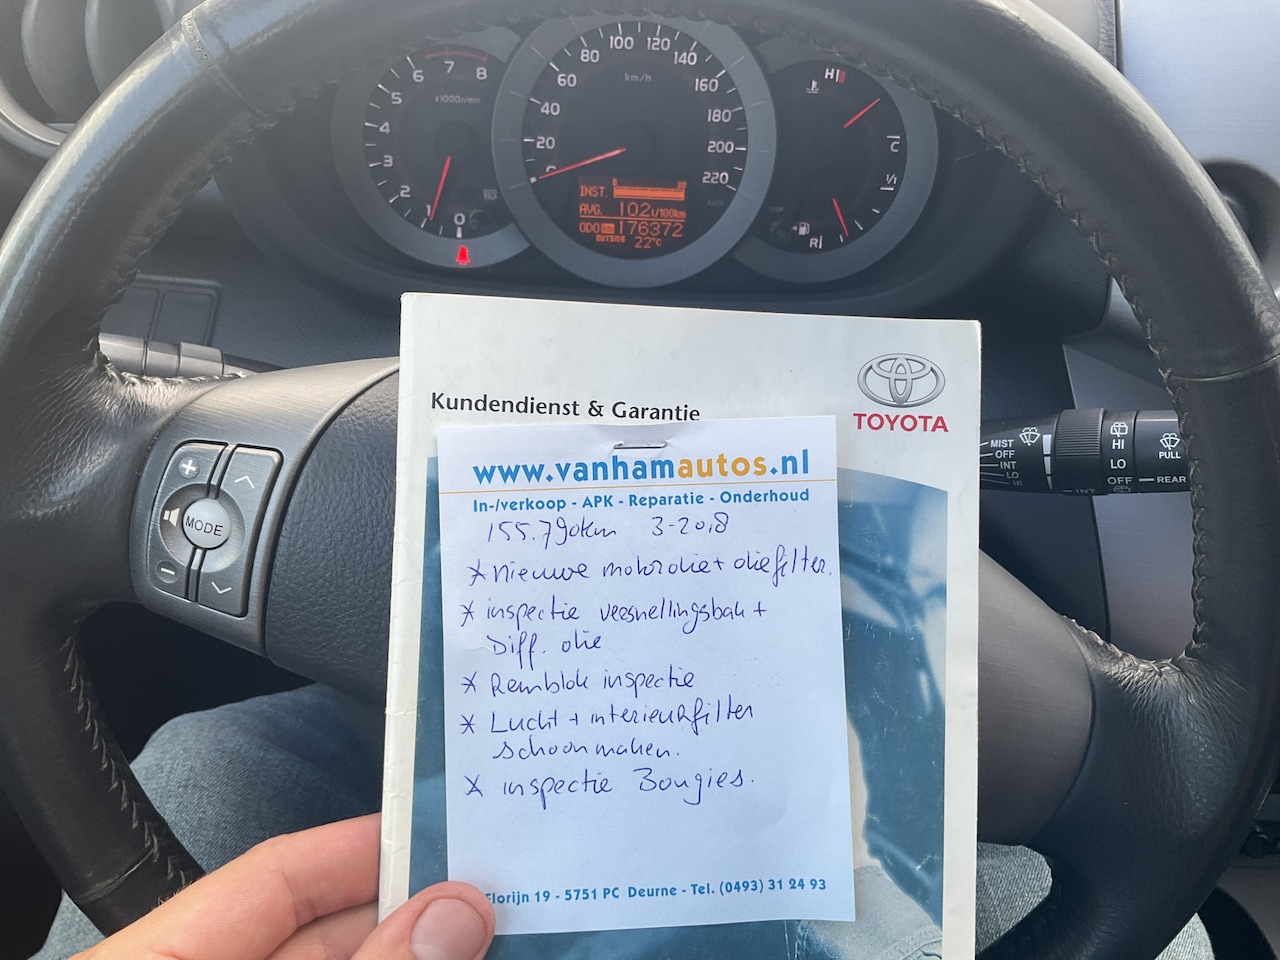 x1000r/min
1 2 3 4 5 6 7 8
0
km/h
0 20 40 60 80 100 120 140 160 180 200 220
INST.
AVG. 102 ℓ/100km
ODO km 176372
OUTSIDE 22°C
HI
C
1/1
R
Kundendienst & Garantie
TOYOTA
www.vanhamautos.nl
In-/verkoop - APK - Reparatie - Onderhoud
155.790km 3-2018
* Nieuwe motorolie + oliefilter.
* inspectie versnellingsbak +
Diff. olie
* Remblok inspectie
* Lucht + interieurfilter
schoonmaken.
* inspectie Bougies.
Florijn 19 - 5751 PC Deurne - Tel. (0493) 31 24 93
+
MODE
−
MIST
OFF
INT
LO
HI
INT
HI
LO
OFF
PULL
REAR